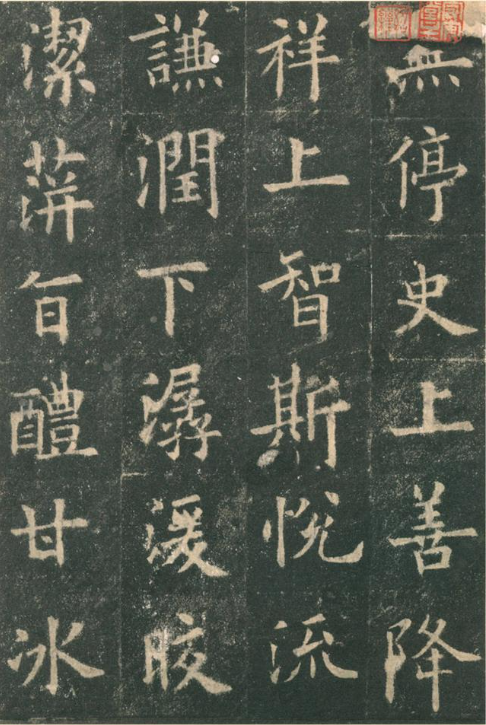 無停史上善降
祥上智斯悅流
謙潤下潺湲皎
潔萍旨醴甘冰